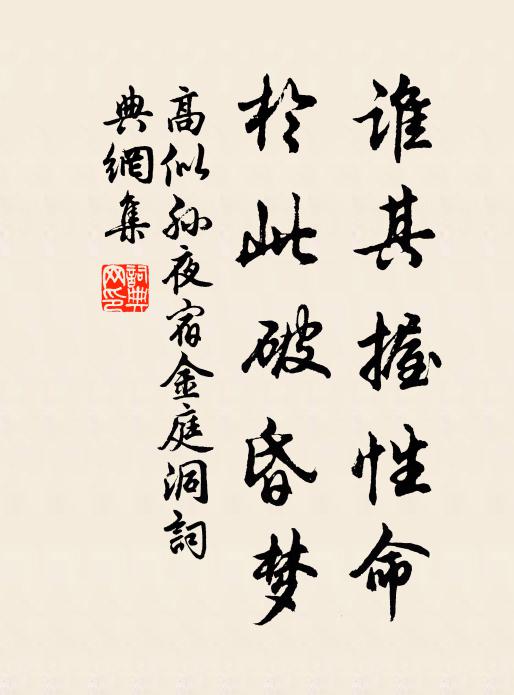 谁其握性命
於此破昏梦
高似孙夜宿金庭洞詞
典網集
詞典网印